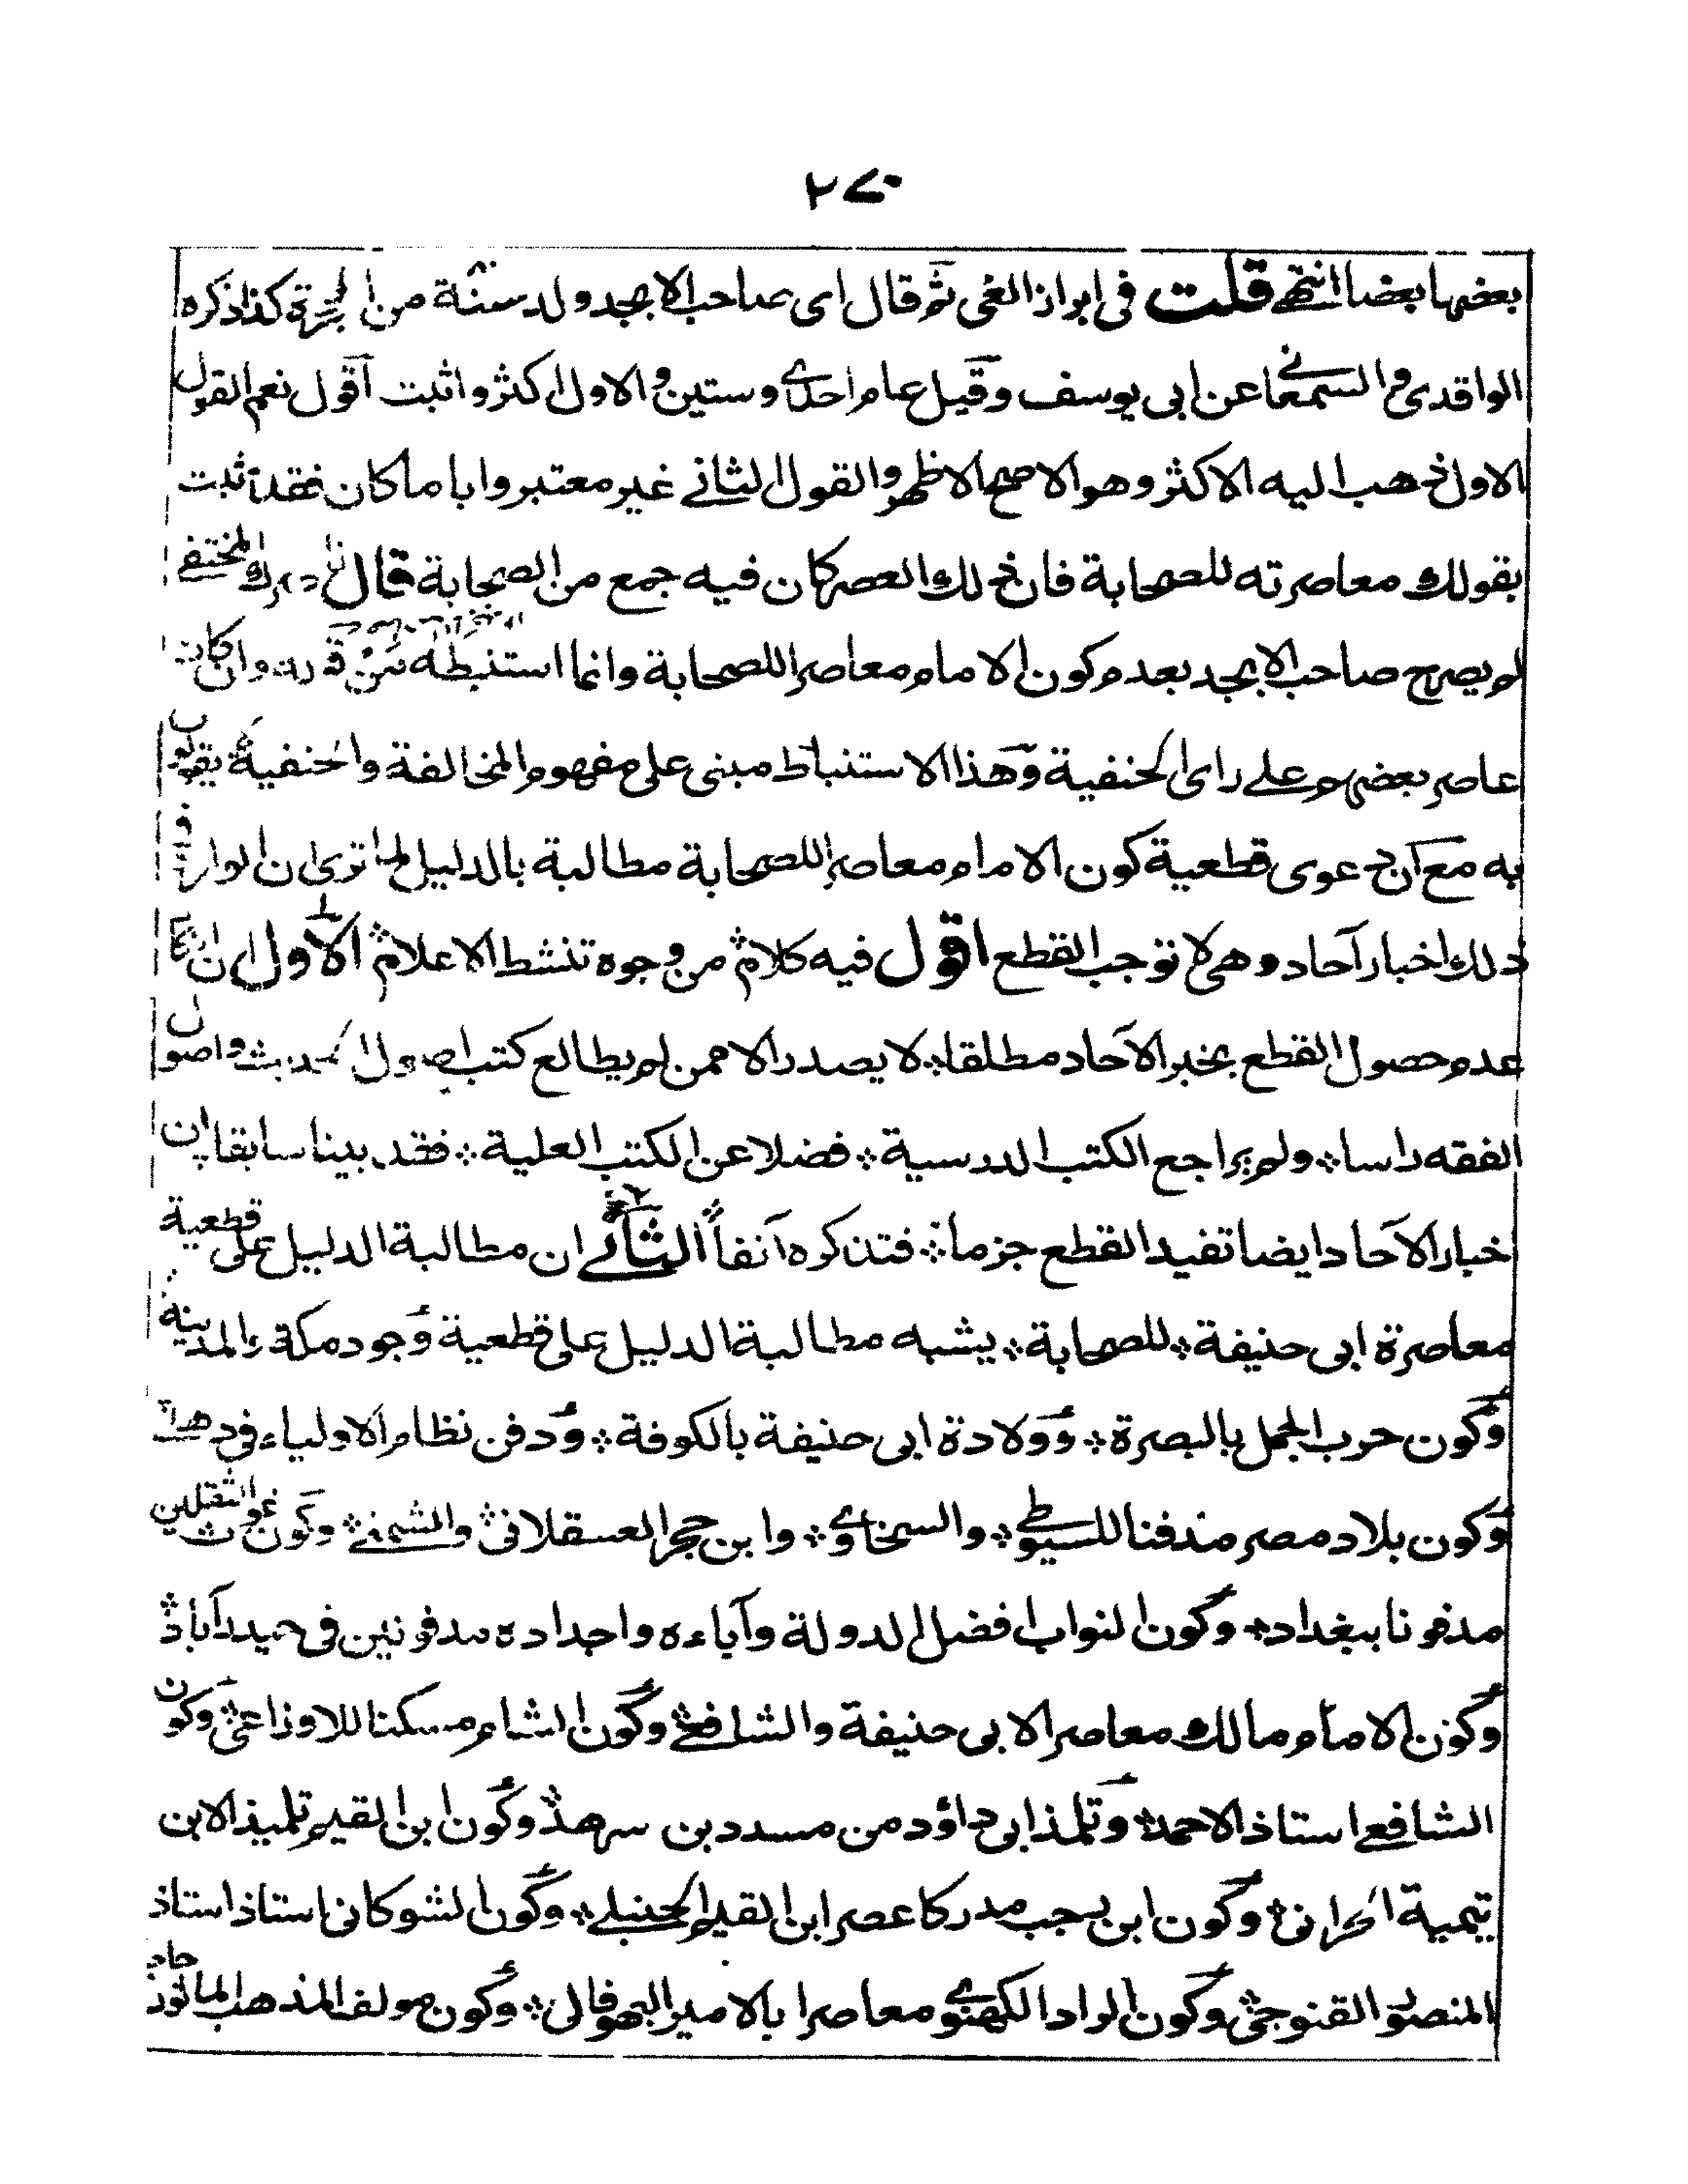 ٢٧٠
بعضها بعضا انتهى قلت فى ابراز الغى ثم قال اى صاحب الابجد ولد سنة من الهجرة كذا ذكره
الواقدى والسمعانى عن ابى يوسف وقيل عام احدى وستين والاول اكثر واثبت اقول نعم القول
الاول ذهب اليه الاكثر وهو الاصح الاظهر والقول الثانى غير معتبر وايا ما كان فقد ثبت
بقولك معاصرته للصحابة فان ذلك العصر كان فيه جمع من الصحابة قال المختفى
لم يصرح صاحب الابجد بعدم كون الامام معاصرا للصحابة وانما استنبطه من وان كان
عاصر بعضهم على راى الحنفية وهذا الاستنباط مبنى على مفهوم المخالفة والحنفية يقول
به مع ان دعوى قطعية كون الامام معاصرا للصحابة مطالبة بالدليل لما ترى ان الوارد فى
ذلك اخبار آحاد وهى لا توجب القطع اقول فيه كلام من وجوه تنشط الاعلام الاول ان
عدم حصول القطع بخبر الآحاد مطلقا لا يصدر الا ممن لم يطالع كتب اصول الحديث واصول
الفقه راسا ولم يراجع الكتب الدرسية فضلا عن الكتب العلية فقد بينا سابقا ان
اخبار الآحاد ايضا تفيد القطع جزما فتذكره آنفا الثانى ان مطالبة الدليل على قطعية
معاصرة ابى حنيفة للصحابة يشبه مطالبة الدليل على قطعية وجود مكة والمدينة
وكون حرب الجمل بالبصرة وولادة ابى حنيفة بالكوفة ودفن نظام الاولياء فى دهلى
وكون بلاد مصر مدفنا للسيوطى والسخاوى وابن حجر العسقلانى والشمنى وكون غوث الثقلين
مدفونا ببغداد وكون النواب افضل الدولة وآباءه واجداده مدفونين فى حيدرآباد
وكون الامام مالك معاصرا لابى حنيفة والشافعى وكون الشام مسكنا للاوزاعى وكون
الشافعى استاذا لاحمد وتلمذ ابى داؤد من مسدد بن سرهد وكون ابن القيم تلميذا لابن
تيمية الحرانى وكون ابن رجب مدركا عصر ابن القيم الحنبلى وكون الشوكانى استاذ استاذ
المنصور القنوجى وكون الراد الكهنوى معاصرا بالامير البهوفالى وكون مولف المذهب الماثور